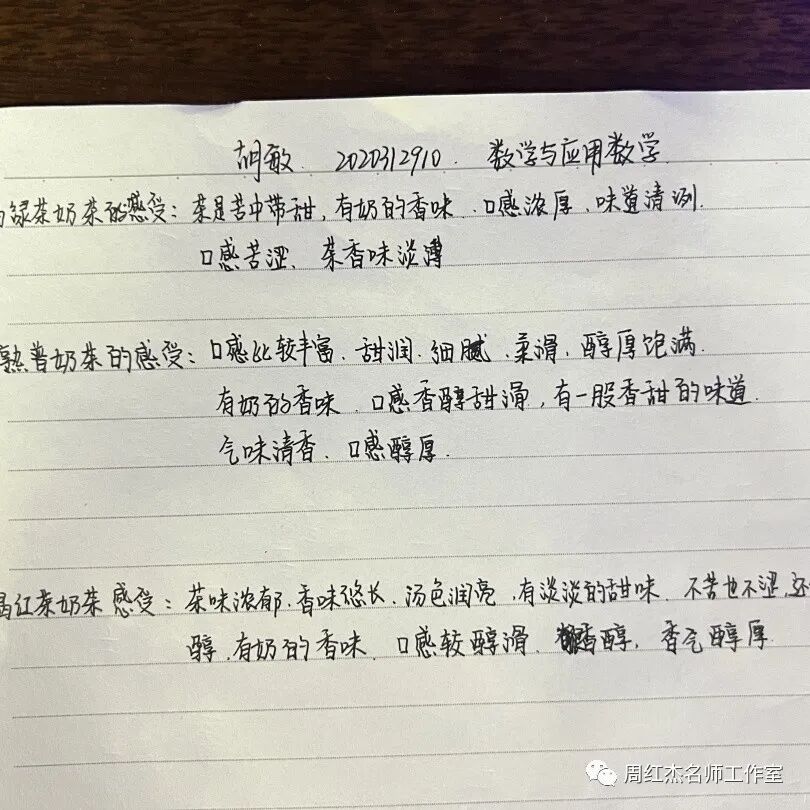 胡敏 2020312910. 数学与应用数学
绿茶奶茶的感受：茶是苦中带甜，有奶的香味、口感浓厚、味道清冽.
口感苦涩、茶香味淡薄
熟普奶茶的感受：口感比较丰富、甜润、细腻、柔滑、醇厚饱满.
有奶的香味、口感香醇甜滑，有一股香甜的味道.
气味清香、口感醇厚.
红茶奶茶感受：茶味浓郁、香味悠长、汤色润亮，有淡淡的甜味、不苦也不涩，
醇、有奶的香味、口感较醇滑、香醇，香气醇厚
周红杰名师工作室